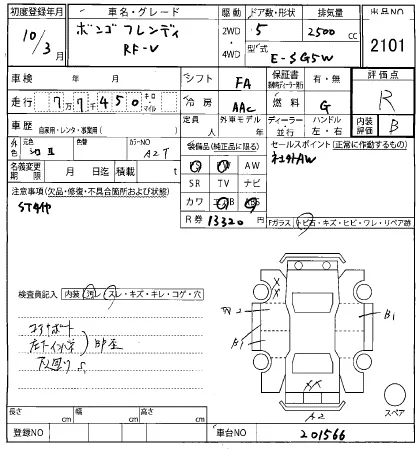 初度登録年月 車名・グレード 駆動 ドア数・形状 排気量 出品NO
10/3月 ボンゴフレンディ RF-V 2WD・4WD 5 2500 cc
型式 E-SG5W 2101
車検 年 月 シフト FA 保証書 有・無 評価点
走行 7万7千450 キロ・マイル 冷房 AAC 燃料 G R
車歴 自家用・レンタ・事業用( ) 定員 人 外車モデル 年 ディーラー・並行 ハンドル 左・右 内装評価 B
外色 元色 シロ III 色替 カラーNO A2T 装備品(純正品に限る) セールスポイント(正常に作動するもの)
名義変更期限 月 日迄 積載 t PS PW AW 社外AW
注意事項(欠品・修復・不具合箇所および状態) SR TV ナビ
STキズ カワ エアB ABS
R券 13320 Fガラス トビ石・キズ・ヒビ・ワレ・リペア跡
検査員記入 内装 汚レ スレ・キズ・キレ・コゲ・穴
コアサポート
左Fインサイド
下廻り サビ
W2
B1
B1
XX
XX
A2
スペア
長さ cm 幅 cm 高さ cm
登録NO 車台NO 201566